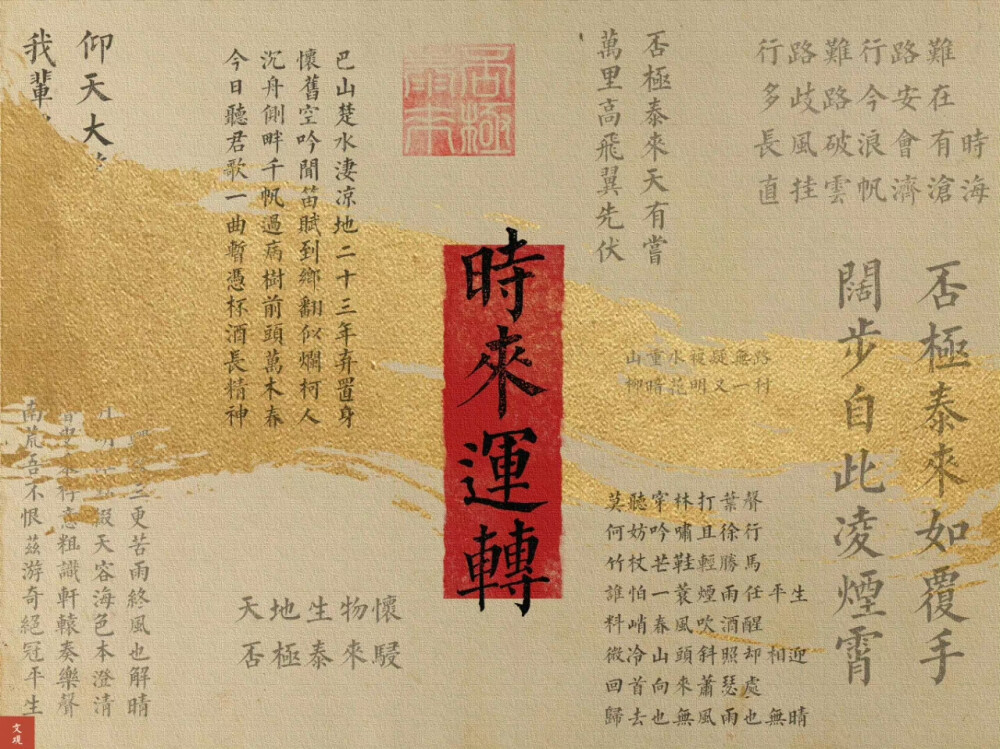 行路難行路難
多歧路今安在
長風破浪會有時
直挂雲帆濟滄海
否極泰來天有嘗
萬里高飛翼先伏
否極泰來
巴山楚水淒凉地二十三年弃置身
懷舊空吟聞笛賦到鄉翻似爛柯人
沉舟側畔千帆過病樹前頭萬木春
今日聽君歌一曲暫憑杯酒長精神
仰天大
我輩
否極泰來如覆手
闊步自此凌煙霄
山重水複疑無路
柳暗花明又村
時來運轉
莫聽穿林打葉聲
何妨吟嘯且徐行
竹杖芒鞋輕勝馬
誰怕一蓑煙雨任平生
料峭春風吹酒醒
微冷山頭斜照却相迎
回首向來蕭瑟處
歸去也無風雨也無晴
天地生物懷
否極泰來駸
三更苦雨終風也解晴
綴天容海色本澄清
意粗識軒轅奏樂聲
南荒吾不恨茲游奇絕冠平生